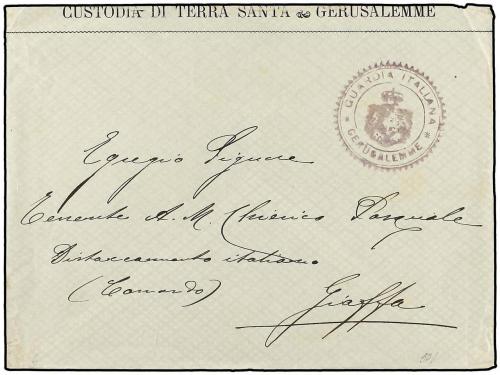 CUSTODIA DI TERRA SANTA GERUSALEMME
* GUARDIA ITALIANA *
GERUSALEMME
Egregio Signore
Tenente A. M. Chierico Pasquale
Distaccamento italiano
(Comando)
Giaffa